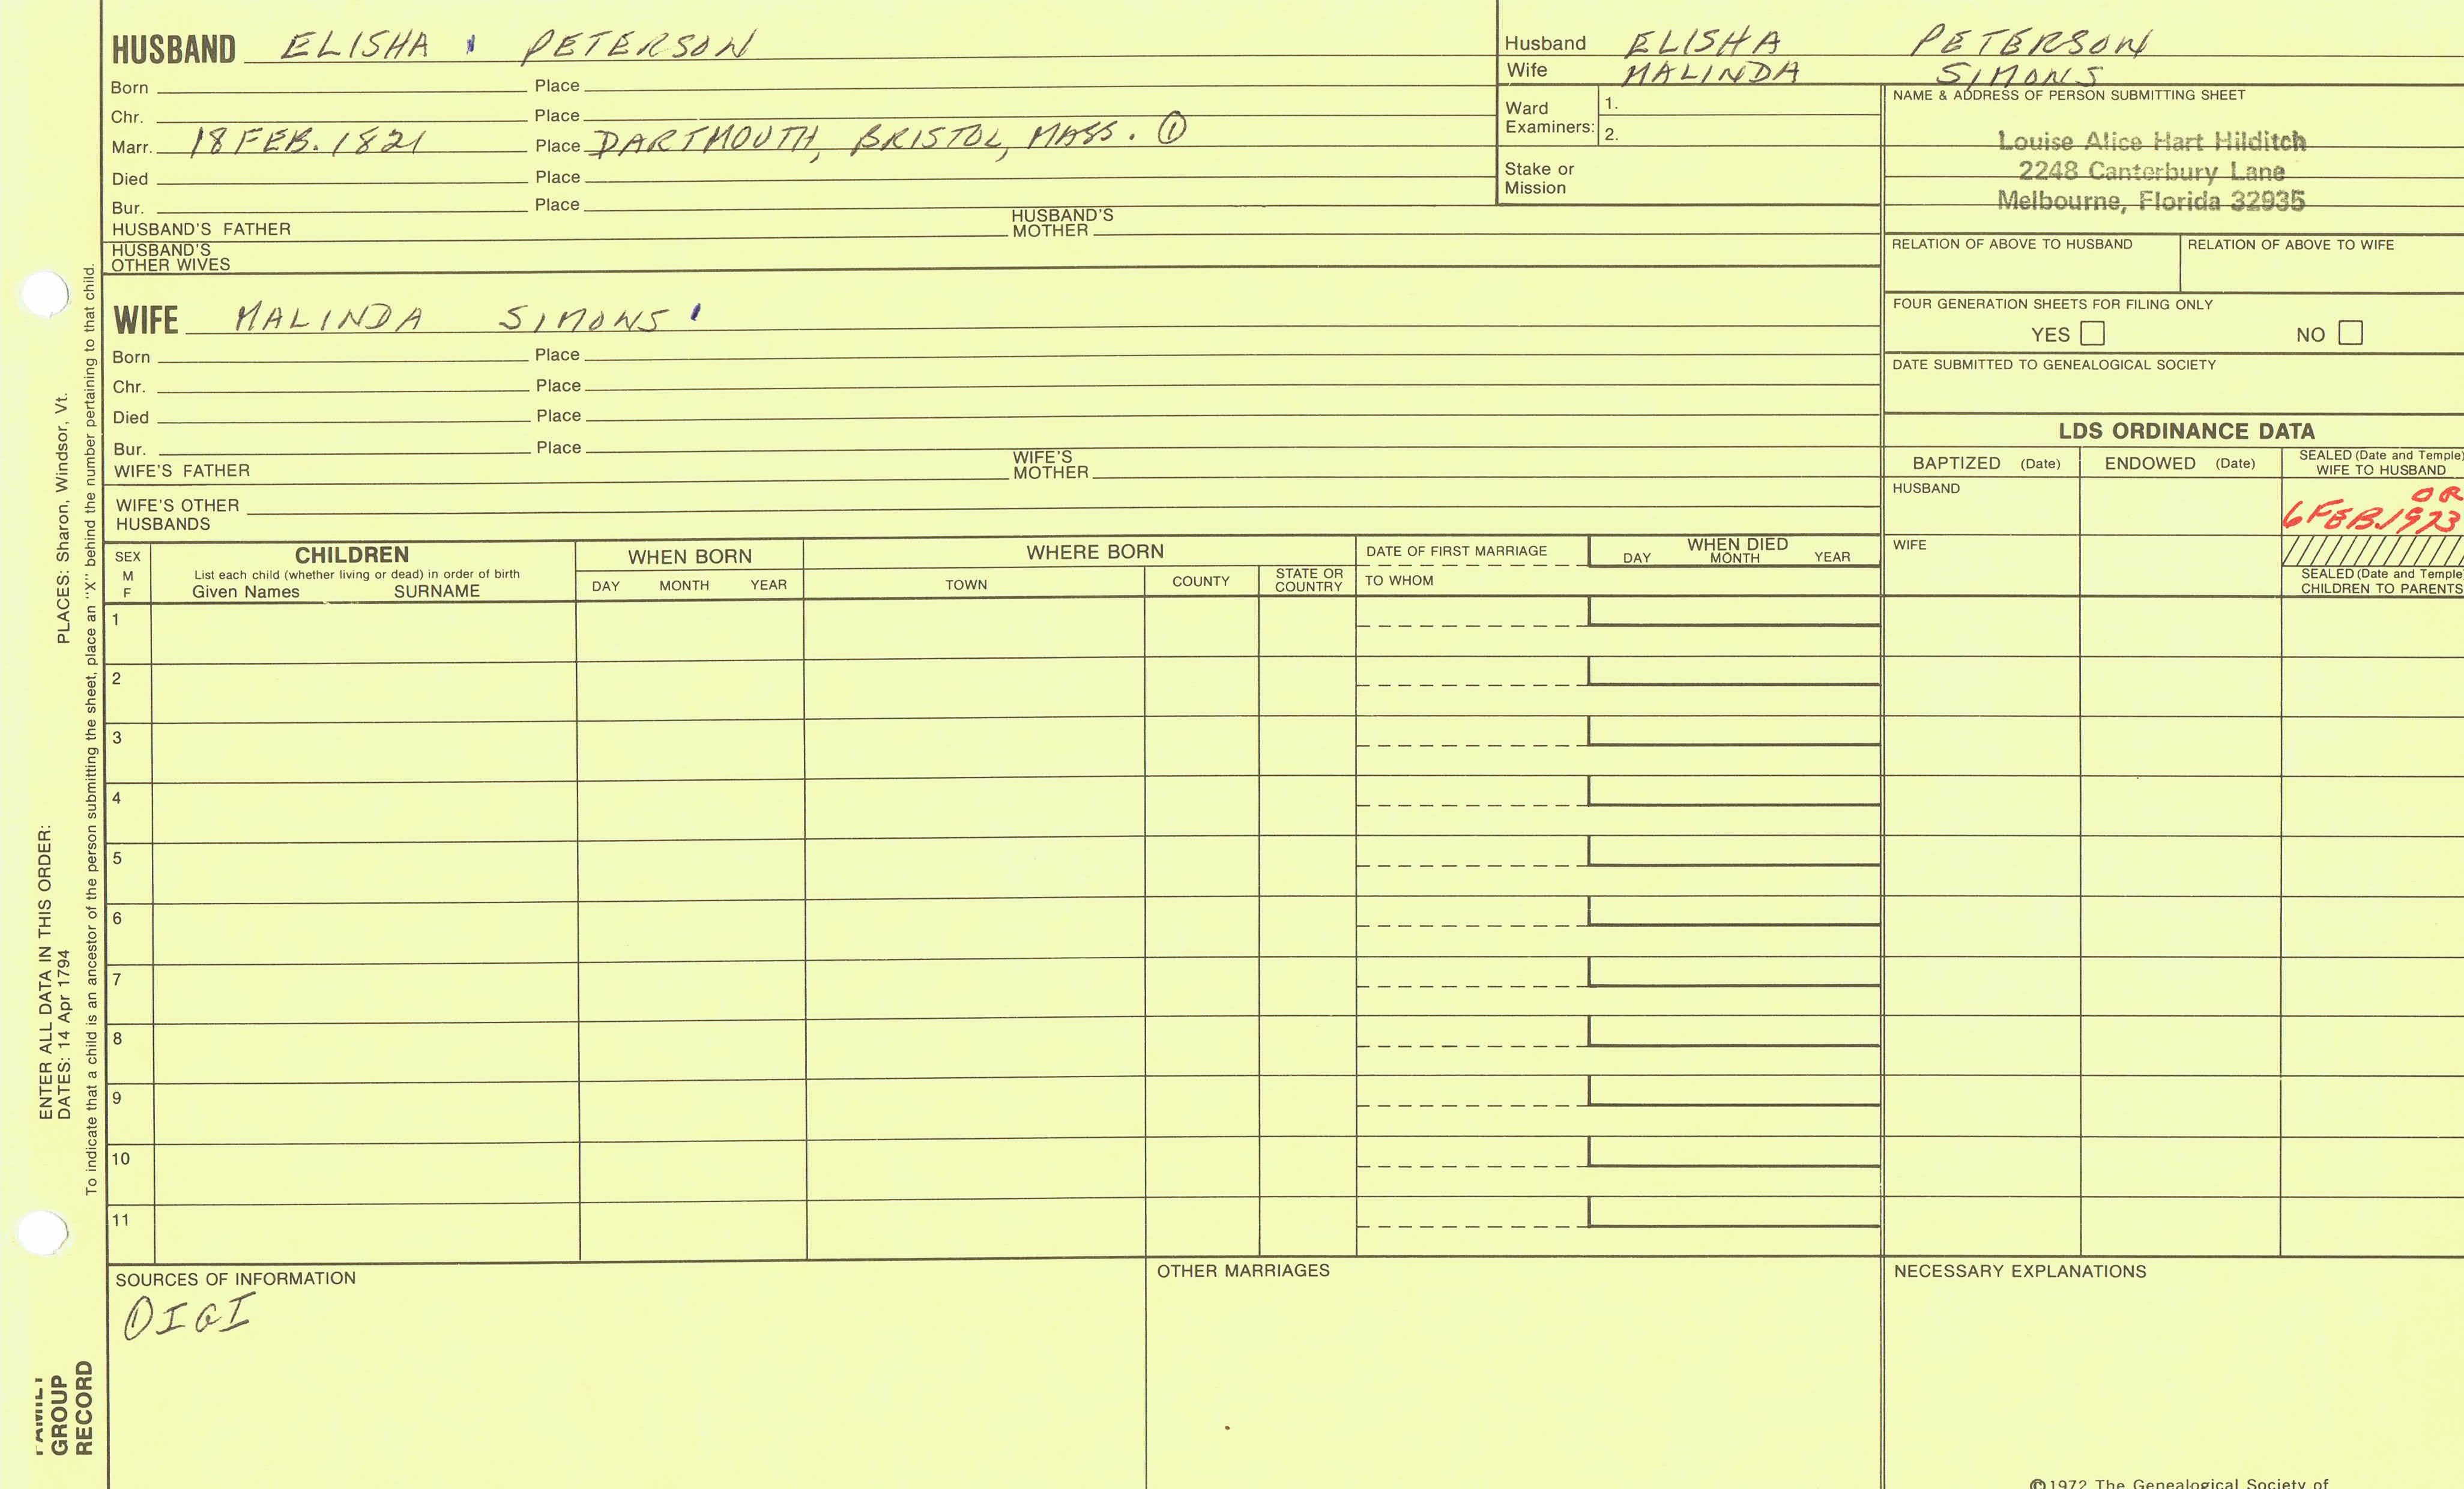 HUSBAND ELISHA PETERSON
Born Place
Chr. Place
Marr. 18 FEB. 1821 Place DARTMOUTH, BRISTOL, MASS. ①
Died Place
Bur. Place
HUSBAND'S FATHER HUSBAND'S MOTHER
HUSBAND'S OTHER WIVES
WIFE MALINDA SIMONS
Born Place
Chr. Place
Died Place
Bur. Place
WIFE'S FATHER WIFE'S MOTHER
WIFE'S OTHER HUSBANDS
Husband ELISHA PETERSON
Wife MALINDA SIMONS
Ward Examiners: 1.
2.
Stake or Mission
NAME & ADDRESS OF PERSON SUBMITTING SHEET
Louise Alice Hart Hilditch
2248 Canterbury Lane
Melbourne, Florida 32935
RELATION OF ABOVE TO HUSBAND RELATION OF ABOVE TO WIFE
FOUR GENERATION SHEETS FOR FILING ONLY
YES NO
DATE SUBMITTED TO GENEALOGICAL SOCIETY
LDS ORDINANCE DATA
BAPTIZED (Date) ENDOWED (Date) SEALED (Date and Temple) WIFE TO HUSBAND
HUSBAND OR
6 FEB. 1973
WIFE
SEALED (Date and Temple) CHILDREN TO PARENTS
SEX M F
CHILDREN
List each child (whether living or dead) in order of birth
Given Names SURNAME
WHEN BORN
DAY MONTH YEAR
WHERE BORN
TOWN COUNTY STATE OR COUNTRY
DATE OF FIRST MARRIAGE
TO WHOM
WHEN DIED
DAY MONTH YEAR
1
2
3
4
5
6
7
8
9
10
11
SOURCES OF INFORMATION
① IGI
OTHER MARRIAGES
NECESSARY EXPLANATIONS
©1972 The Genealogical Society of
ENTER ALL DATA IN THIS ORDER:
DATES: 14 Apr 1794 PLACES: Sharon, Windsor, Vt.
To indicate that a child is an ancestor of the person submitting the sheet, place an "X" behind the number pertaining to that child.
FAMILY
GROUP
RECORD